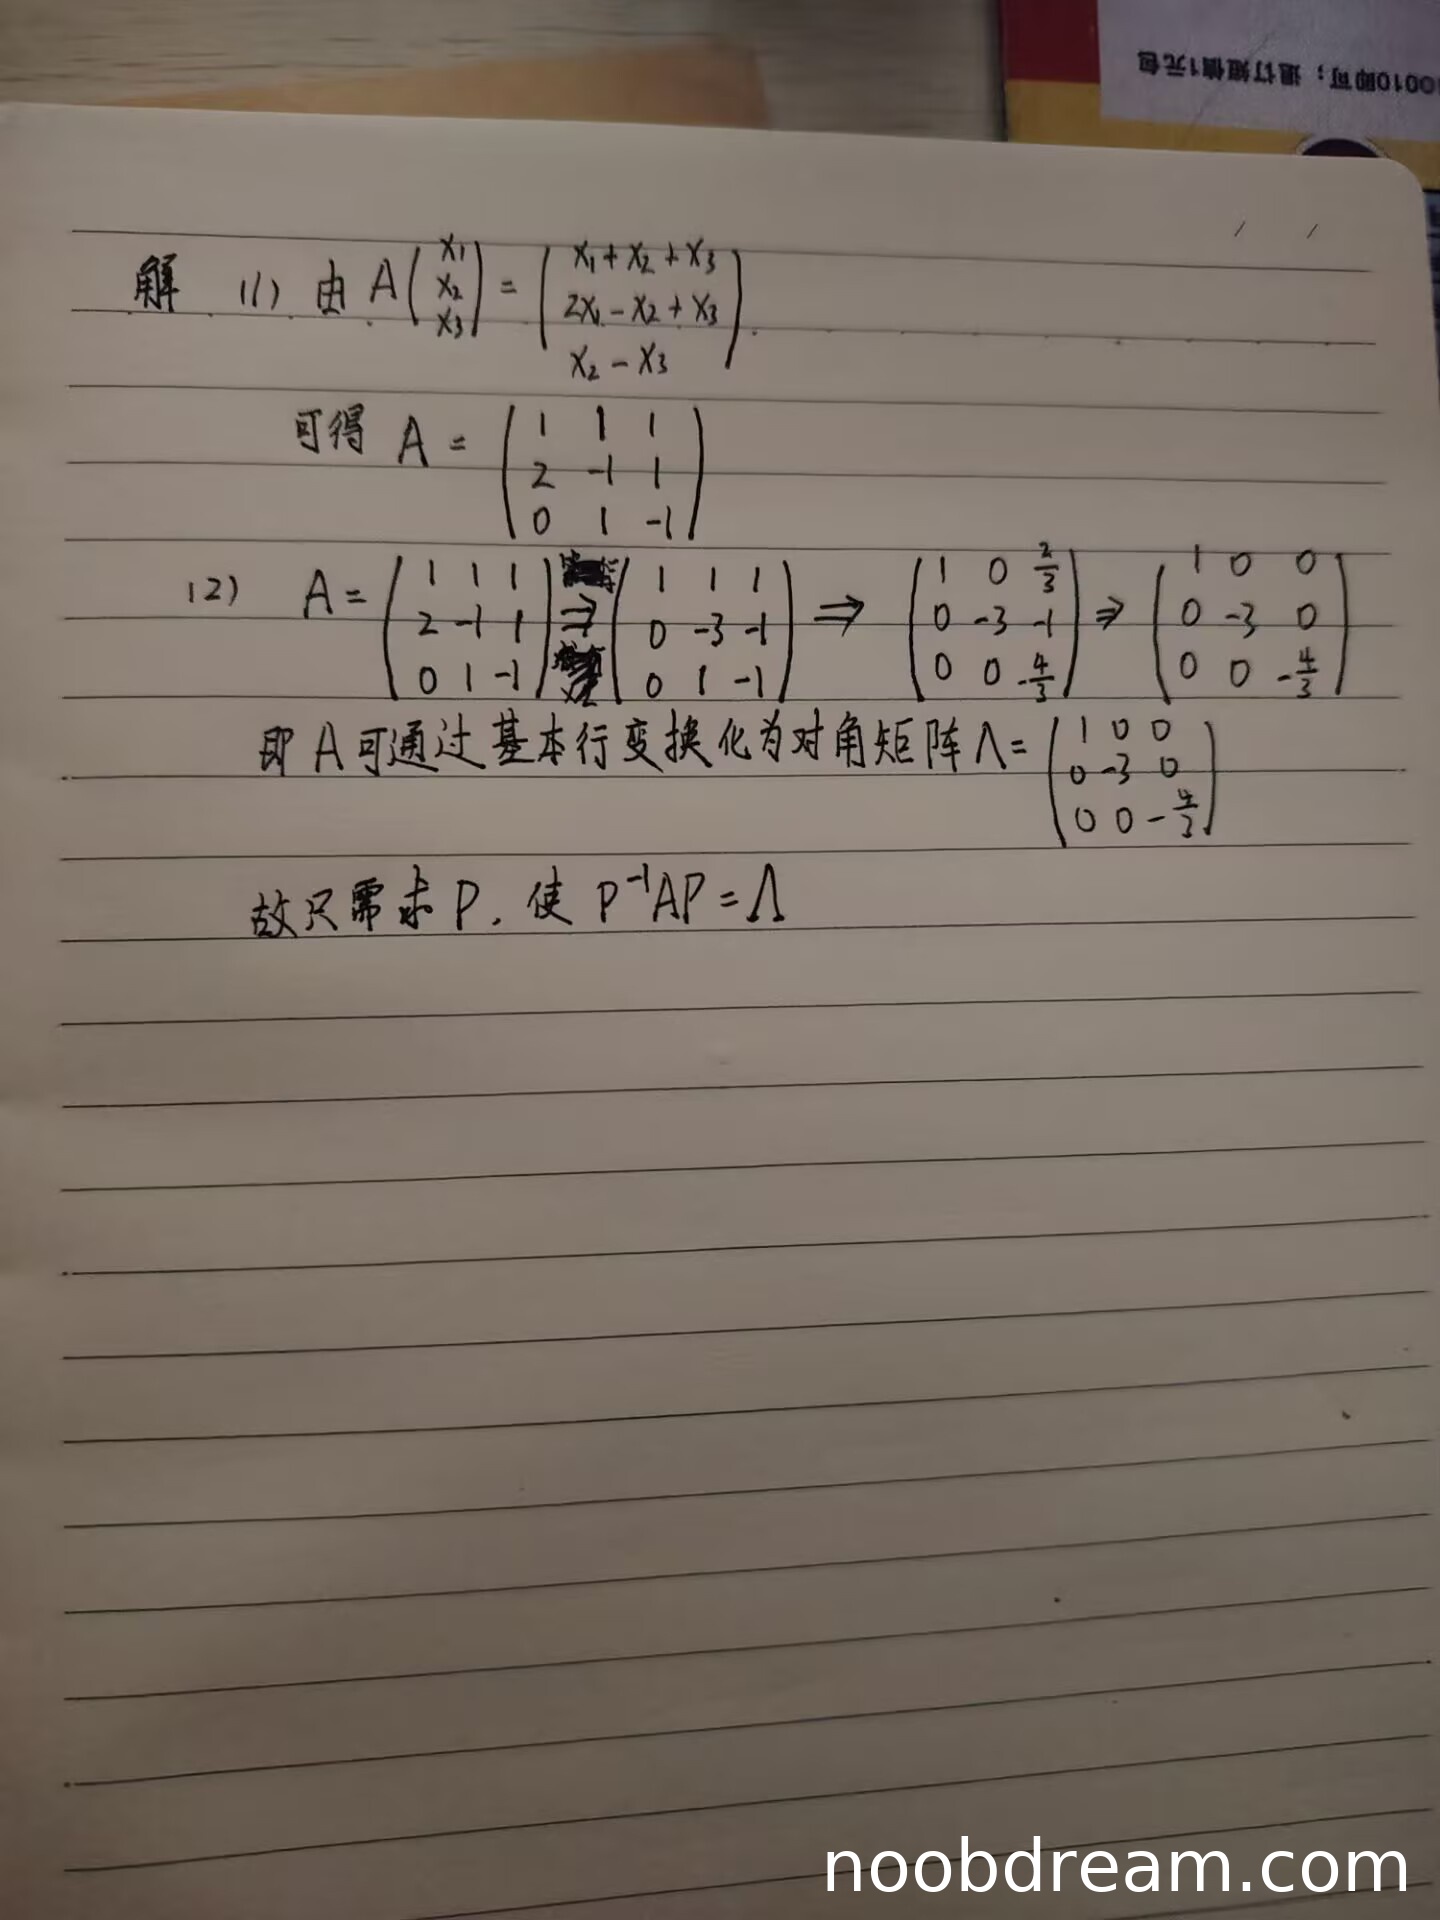 0010即可；退订短信1元包
解 (1) 由 A(x₁ x₂ x₃) = (x₁+x₂+x₃
2x₁-x₂+x₃
x₂-x₃).
可得 A = (1 1 1
2 -1 1
0 1 -1)
(2) A = (1 1 1 ⇒ (1 1 1 ⇒ (1 0 2/3 ⇒ (1 0 0
2 -1 1 0 -3 -1 0 -3 -1 0 -3 0
0 1 -1) 0 1 -1) 0 0 -4/3) 0 0 -4/3)
即 A可通过基本行变换化为对角矩阵Λ= (1 0 0
0 -3 0
0 0 -4/3)
故只需求 P. 使 P⁻¹AP=Λ
noobdream.com